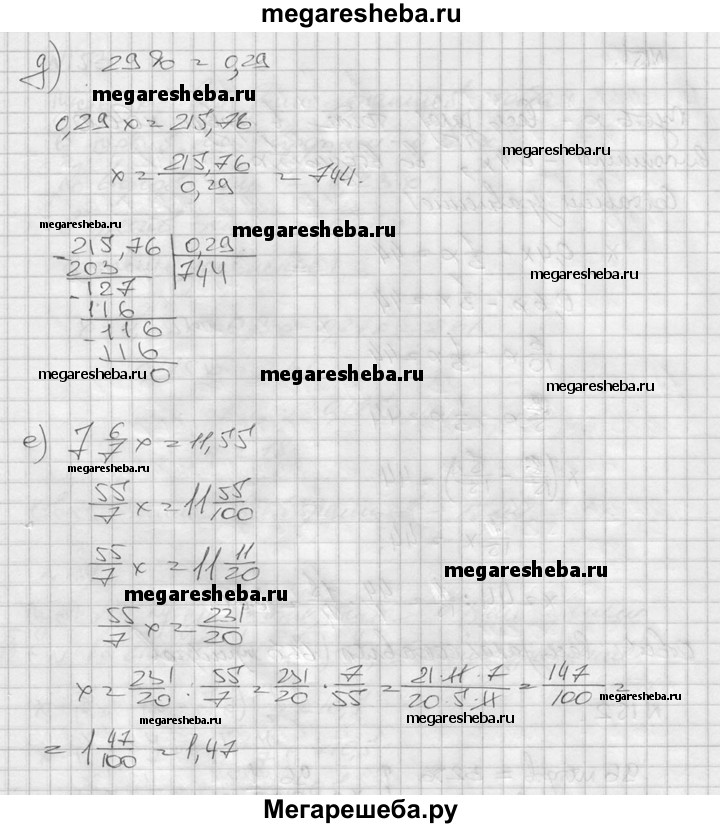 megaresheba.ru
д) 29% = 0,29
megaresheba.ru
0,29 x = 215,76
megaresheba.ru
x = 215,76 / 0,29 = 744.
megaresheba.ru
megaresheba.ru
- 215,76 | 0,29
203 | 744
megaresheba.ru
- 127
116
- 116
116
megaresheba.ru 0
megaresheba.ru
megaresheba.ru
е) 7 6/7 x = 11,55
megaresheba.ru
55/7 x = 11 55/100
55/7 x = 11 11/20
megaresheba.ru
megaresheba.ru
55/7 x = 231/20
x = 231/20 · 55/7 = 231/20 · 7/55 = 21·11·7 / 20·5·11 = 147/100 =
megaresheba.ru
megaresheba.ru
megaresheba.ru
= 1 47/100 = 1,47
Мегарешеба.ру